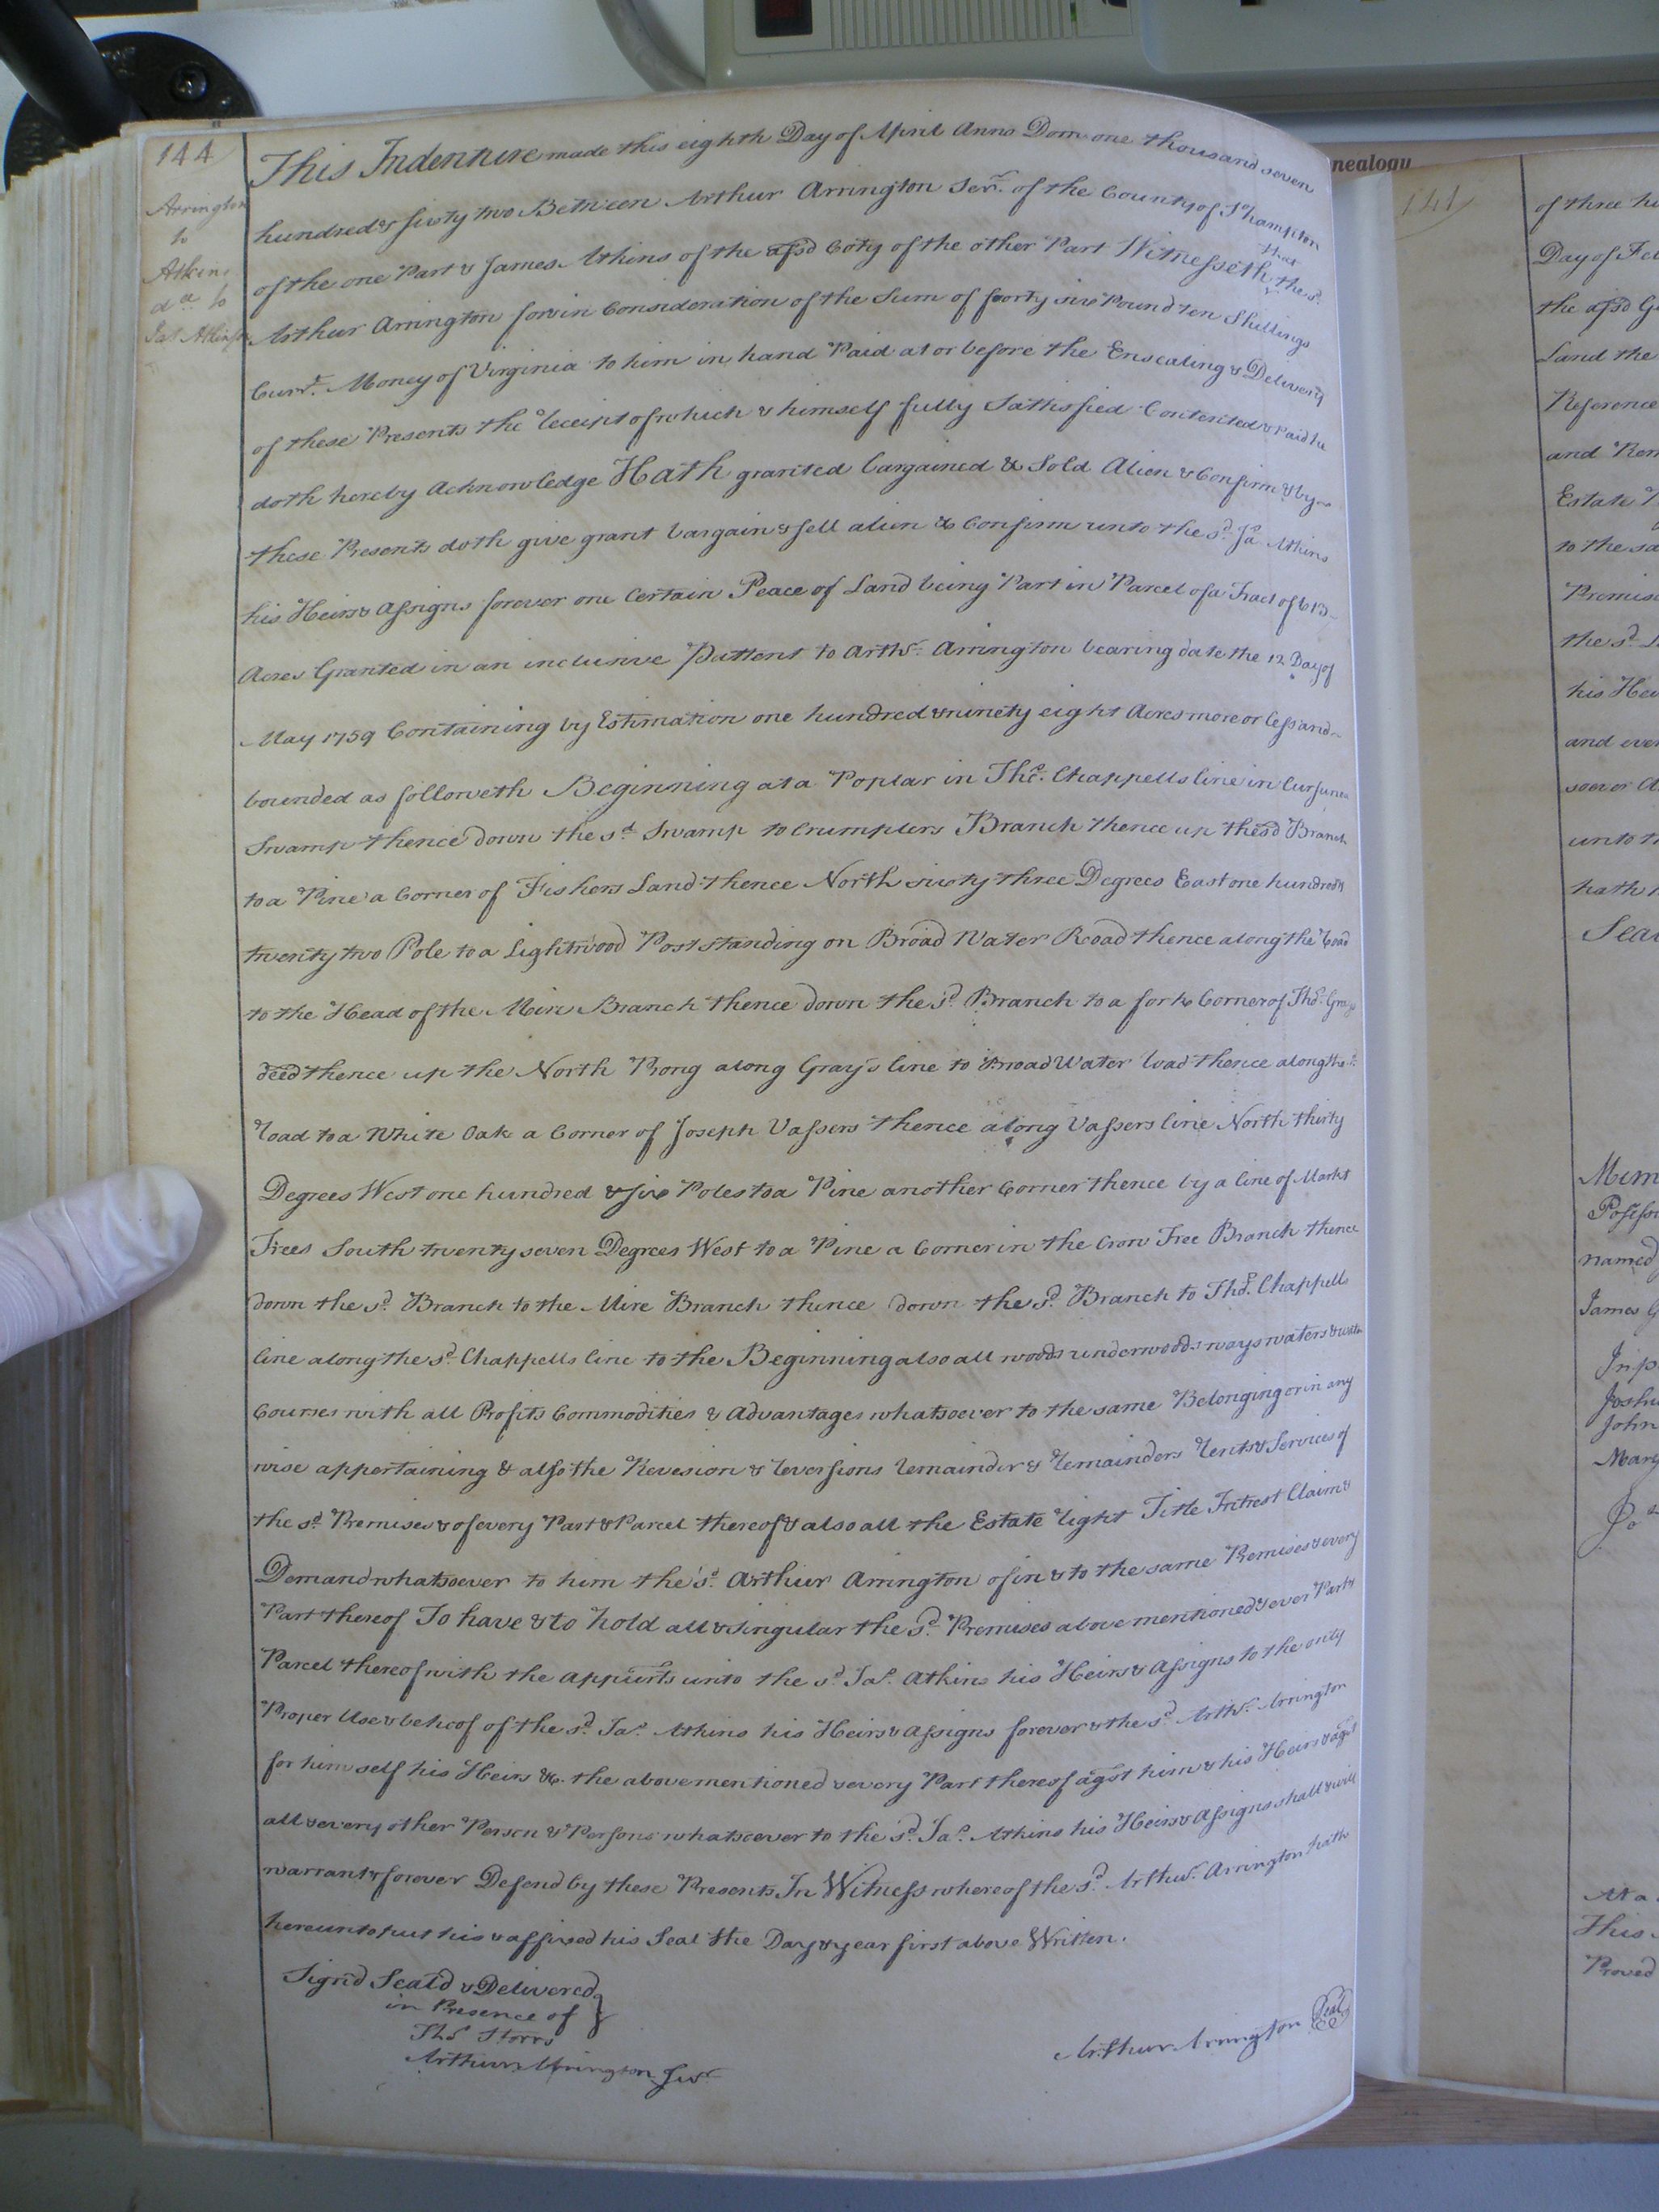 144
Arrington
to
Atkins
da. to
Jas Atkins
This Indenture made this eighth Day of April Anno Dom one thousand seven
hundred & sixty two Between Arthur Arrington Senr. of the County of So hampton
of the one Part & James Atkins of the afsd Coty of the other Part Witnesseth that the sd.
Arthur Arrington for & in Consideration of the Sum of foorty six Pound ten Shillings
Currt. Money of Virginia to him in hand Paid at or before the Ensealing & Delivery
of these Presents the receipt of which & himself fully Sathisfied Contented & Paid he
doth hereby Acknowledge Hath granted bargained & Sold Alien & Confirm & by
these Presents doth give grant bargain & sell alien & Confirm unto the sd. Jas. Atkins
his Heirs & Assigns forever one Certain Peace of Land being Part in Parcel of a Tract of 613
Acres Granted in an inclusive Pattent to Arthr. Arrington bearing date the 12 Day of
May 1759 Containing by Estimation one hundred & ninety eight Acres more or less and
bounded as followeth Beginning at a Poplar in Thos. Chappells line in
Swamp thence down the sd Swamp to Crumplers Branch thence up the sd Branch
to a Pine a Corner of Fishers Land thence North sixty three Degrees East one hundred &
twenty two Pole to a Lightwood Post standing on Broad Water Road thence along the road
to the Head of the Mire Branch thence down the sd. Branch to a fork Corner of Thos. Grays
deed thence up the North Prong along Gray's line to Broad Water road thence along the sd.
road to a White Oak a Corner of Joseph Vassers thence along Vassers line North thirty
Degrees West one hundred & six Poles to a Pine another Corner thence by a line of Markt
Trees South twenty seven Degrees West to a Pine a Corner in the Crow Tree Branch thence
down the sd. Branch to the Mire Branch thence down the sd. Branch to Thos. Chappells
line along the sd. Chappells line to the Beginning also all woods underwoods ways waters & water
Courses with all Profits Commodities & Advantages whatsoever to the same Belonging or in any
wise appertaining & also the Revesion & reversions remainder & remainders rents & Services of
the sd. Premises & of every Part & Parcel thereof & also all the Estate right Title Intrest Claim &
Demand whatsoever to him the sd. Arthur Arrington of in & to the same Premises & every
Part thereof To have & to hold all & singular the sd. Premises above mentioned & ever Part &
Parcel thereof with the appurts unto the sd. Jas. Atkins his Heirs & Assigns to the only
Proper Use & behoof of the sd. Jas. Atkins his Heirs & Assigns forever & the sd. Arthr. Arrington
for him self his Heirs &c. the above mentioned & every Part thereof agst him & his Heirs & agst
all & every other Person & Persons whatsoever to the sd. Jas. Atkins his Heirs & Assigns shall & will
warrant & forever Defend by these Presents In Witness whereof the sd. Arthur. Arrington hath
hereunto put his & affixed his Seal the Day & year first above Written.
Signd Seald & Delivered
in Presence of
Thos Storrs
Arthur Arrington Junr.
Arthur Arrington Seal
nealogy
141
of three hu
Day of Feb
the afsd G
Land the
Reference
and Rem
Estate
to the sa
Premis
the sd.
his Hei
and ever
soever
unto th
hath
Seal
Mem
Possess
named
James G
In p
Joshu
John
Mary
At a
This
Proved